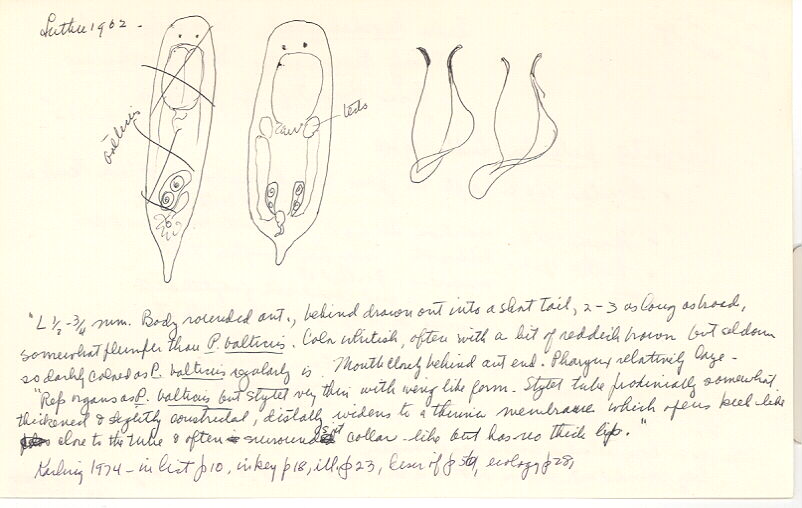 Luther 1962 -
balticus
testis
"L ½-¾ mm. Body rounded ant., behind drawn out into a short tail, 2-3 as long as broad,
somewhat plumper than P. balticus. Color whitish, often with a bit of reddish brown but seldom
so darkly colored as P. balticus regularly is. Mouth closely behind ant end. Pharynx relatively large -
"Rep organs as P. balticus but stylet very thin with wing like form - Stylet tube proximally somewhat
thickened & slightly constricted, distally widens to a thinner membrane which opens keel-like
close to the tube & often surrounds it collar-like but has no thick lip."
Karling 1974 - in list p10, in key p18, ill. p23, ecology p28,